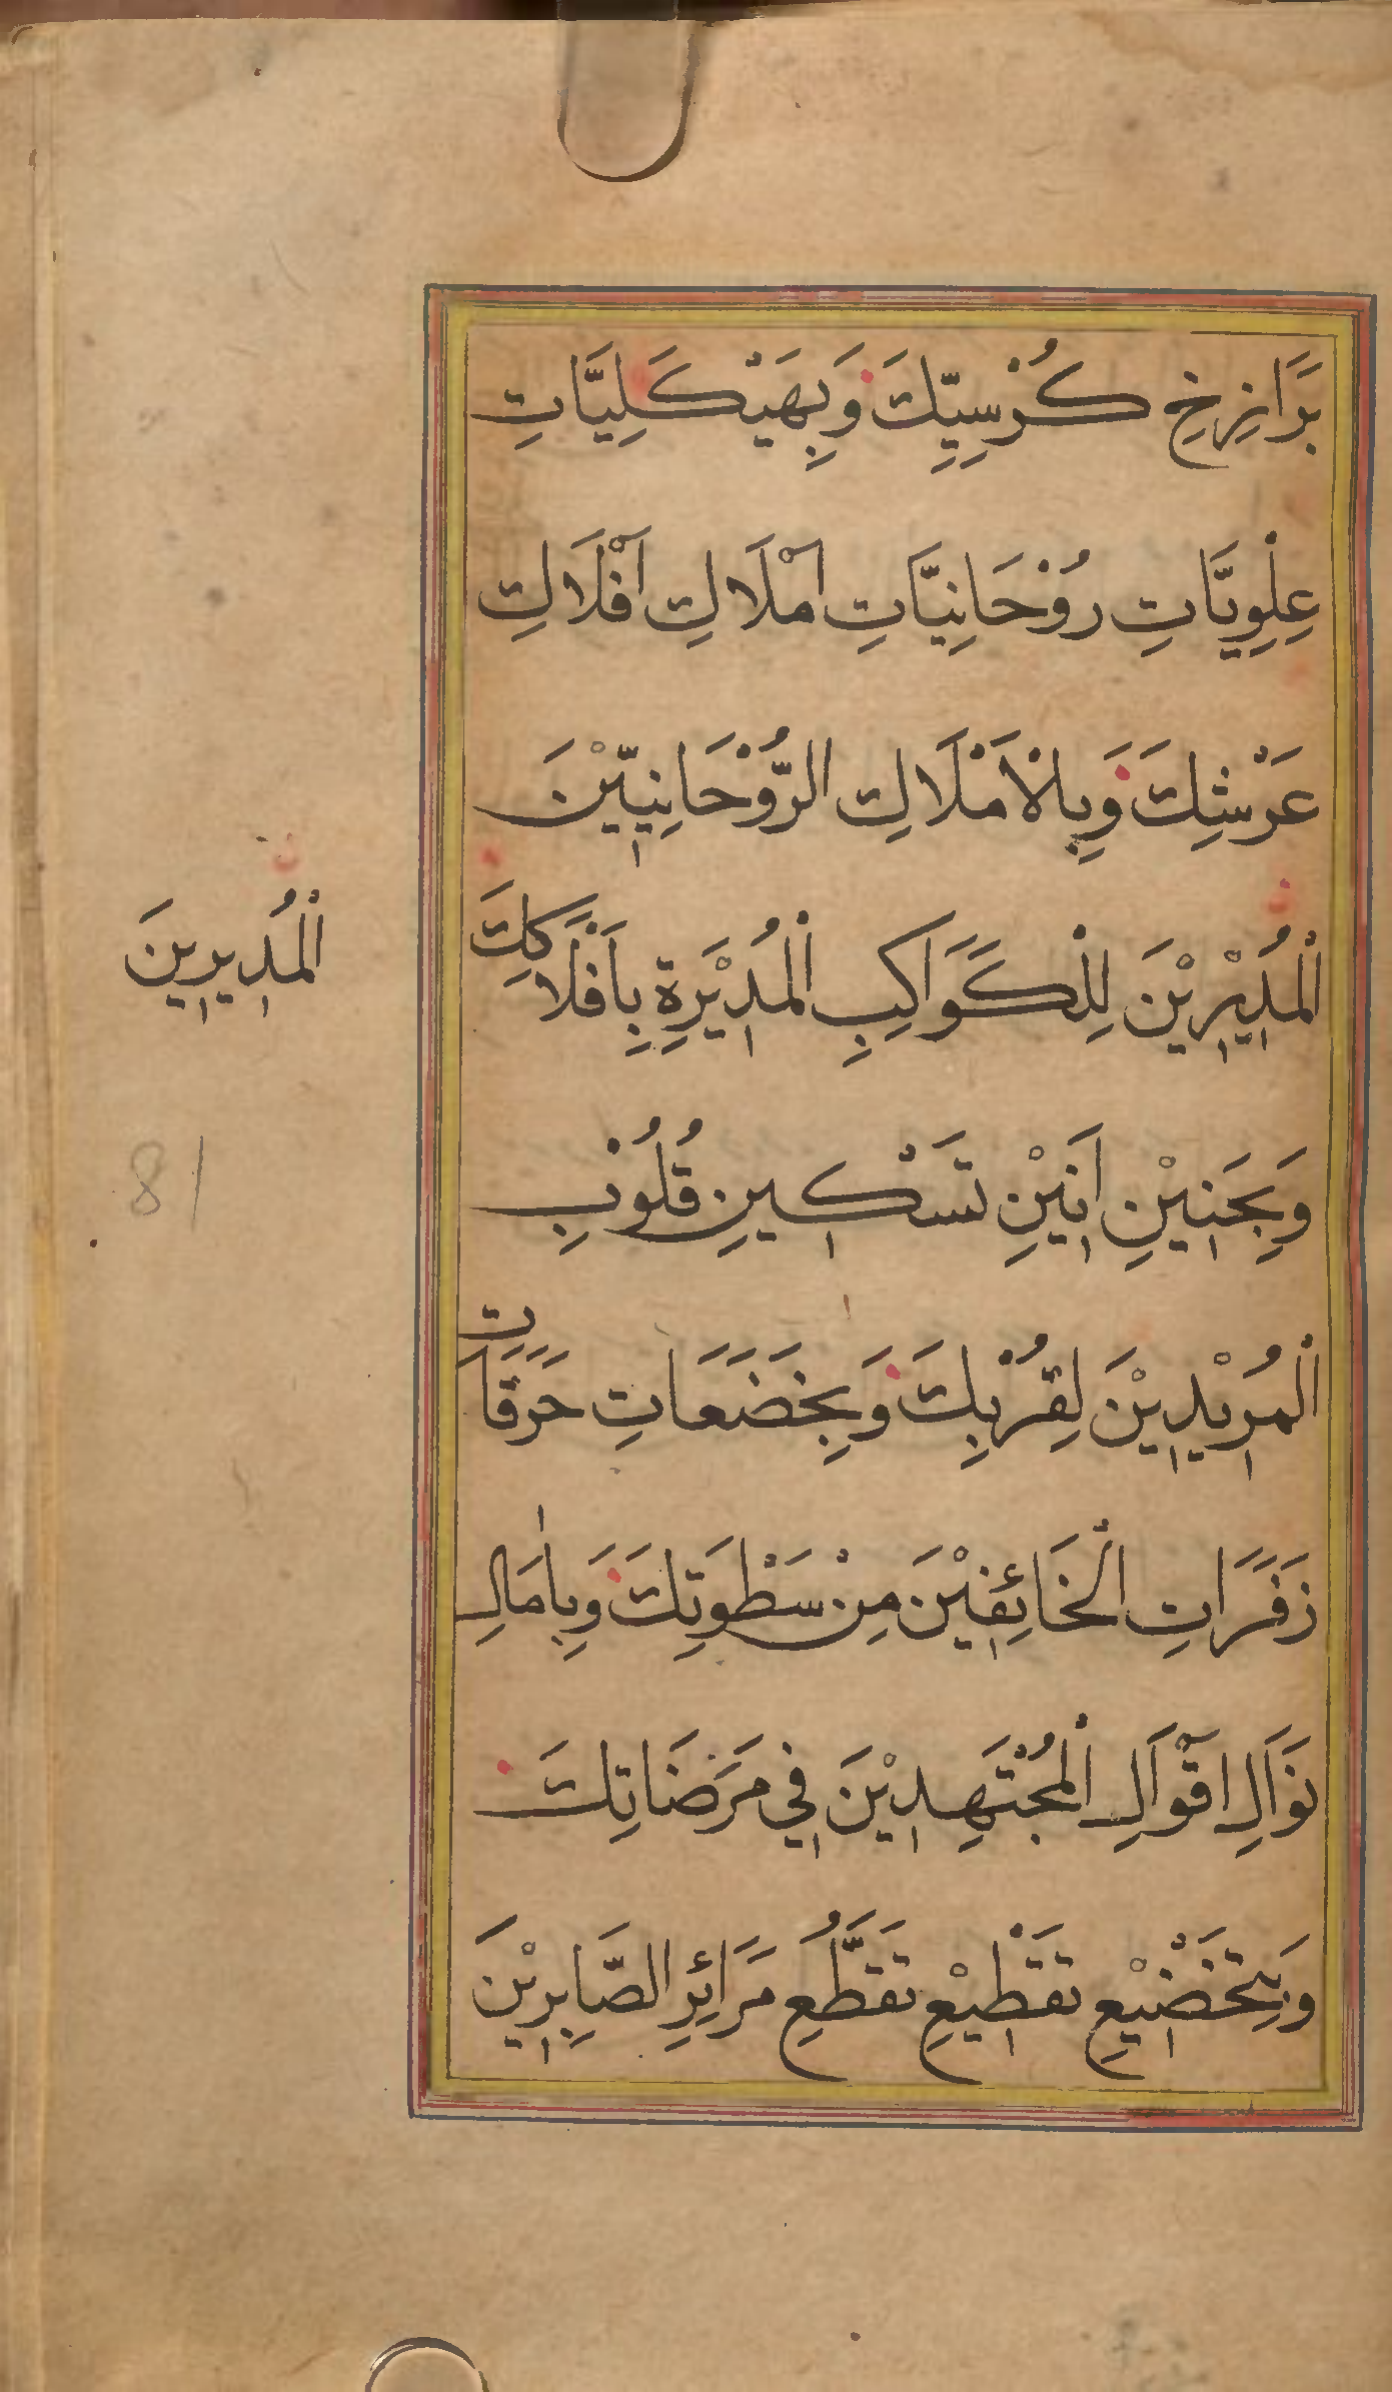 بَرَازِخِ كُرْسِيِّكَ وَبِهَيْكَلِيَّاتِ
عِلْوِيَّاتِ رُوْحَانِيَّاتِ اَمْلَاكِ اَفْلَاكِ
عَرْشِكَ وَبِالْاَمْلَاكِ الرُّوْحَانِيّيْنَ
اَلْمُدِيْرِيْنَ لِلْكَوَاكِبِ الْمُدِيْرَةِ بِاَفْلَاكِكَ
وَبِحَنِيْنِ اَنِيْنِ تَسْكِينِ قُلُوْبِ
الْمُرِيْدِيْنَ لِقُرْبِكَ وَبِخَضَعَاتِ حَرَقَاتِ
زَفَرَاتِ الْخَائِفِيْنَ مِنْ سَطْوَتِكَ وَبِاٰمَالِ
نَوَالِ اَقْوَالِ الْمُجْتَهِدِيْنَ فِي مَرَضَاتِكَ
وَبِتَخَضْضِيْعِ تَقْطِيْعِ تَقَطُّعِ مَرَائِرِ الصَّابِرِيْنَ
اَلْمُدِيرِينَ
81